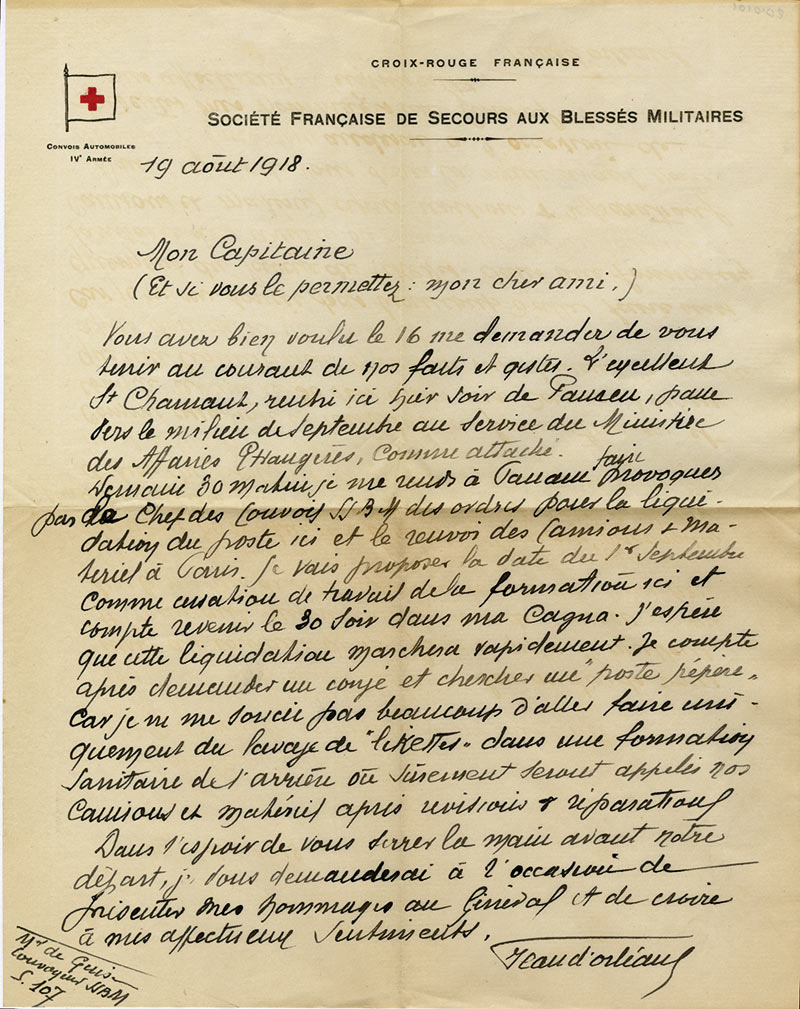 CROIX-ROUGE FRANÇAISE
SOCIÉTÉ FRANÇAISE DE SECOURS AUX BLESSÉS MILITAIRES
CONVOIS AUTOMOBILES
IVe ARMÉE
19 août 1918.
Mon Capitaine
(Et si vous le permettez : mon cher ami.)
Vous avez bien voulu le 16 me demander de vous
tenir au courant de nos faits et gestes. L'excellent
St Chamant, rentré ici hier soir de , passe
vers le milieu de Septembre au service du Ministère
des Affaires Etrangères, comme attaché.
Demain 30 matin je me rends à faire provoquer
par le Chef des Convois SSBM des ordres pour la liqui-
dation du poste ici et le renvoi des Camions & ma-
tériel à Paris. Je vais proposer la date du 1er Septembre
comme cessation de travail de la formation ici et
compte revenir le 30 soir dans ma Cagna. J'espère
que cette liquidation marchera rapidement. Je compte
après demander un congé et chercher un "poste pépère"
car je ne me soucie pas beaucoup d'aller faire uni-
quement du lavage de "liKettes" dans une formation
sanitaire de l'arrière où sûrement seront appelés nos
Camions et matériel après revisions & réparations
Dans l'espoir de vous serrer la main avant notre
départ, je vous demanderai à l'occasion de
présenter mes hommages au Général et de croire
à mes affectueux sentiments.
Jean d'orléans
Mr de
Convoyeur SSBM
S. 107